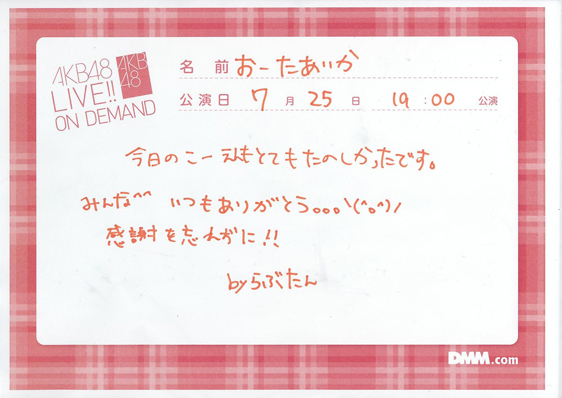 AKB48
LIVE!!
ON DEMAND
AKB
48
名前 おーたあいか
公演日 7月25日 19:00 公演
今日のこーえんもとてもたのしかったです。
みんな^^ いつもありがとう。。。\(^o^)/
感謝を忘れずに!!
byらぶたん
DMM.com